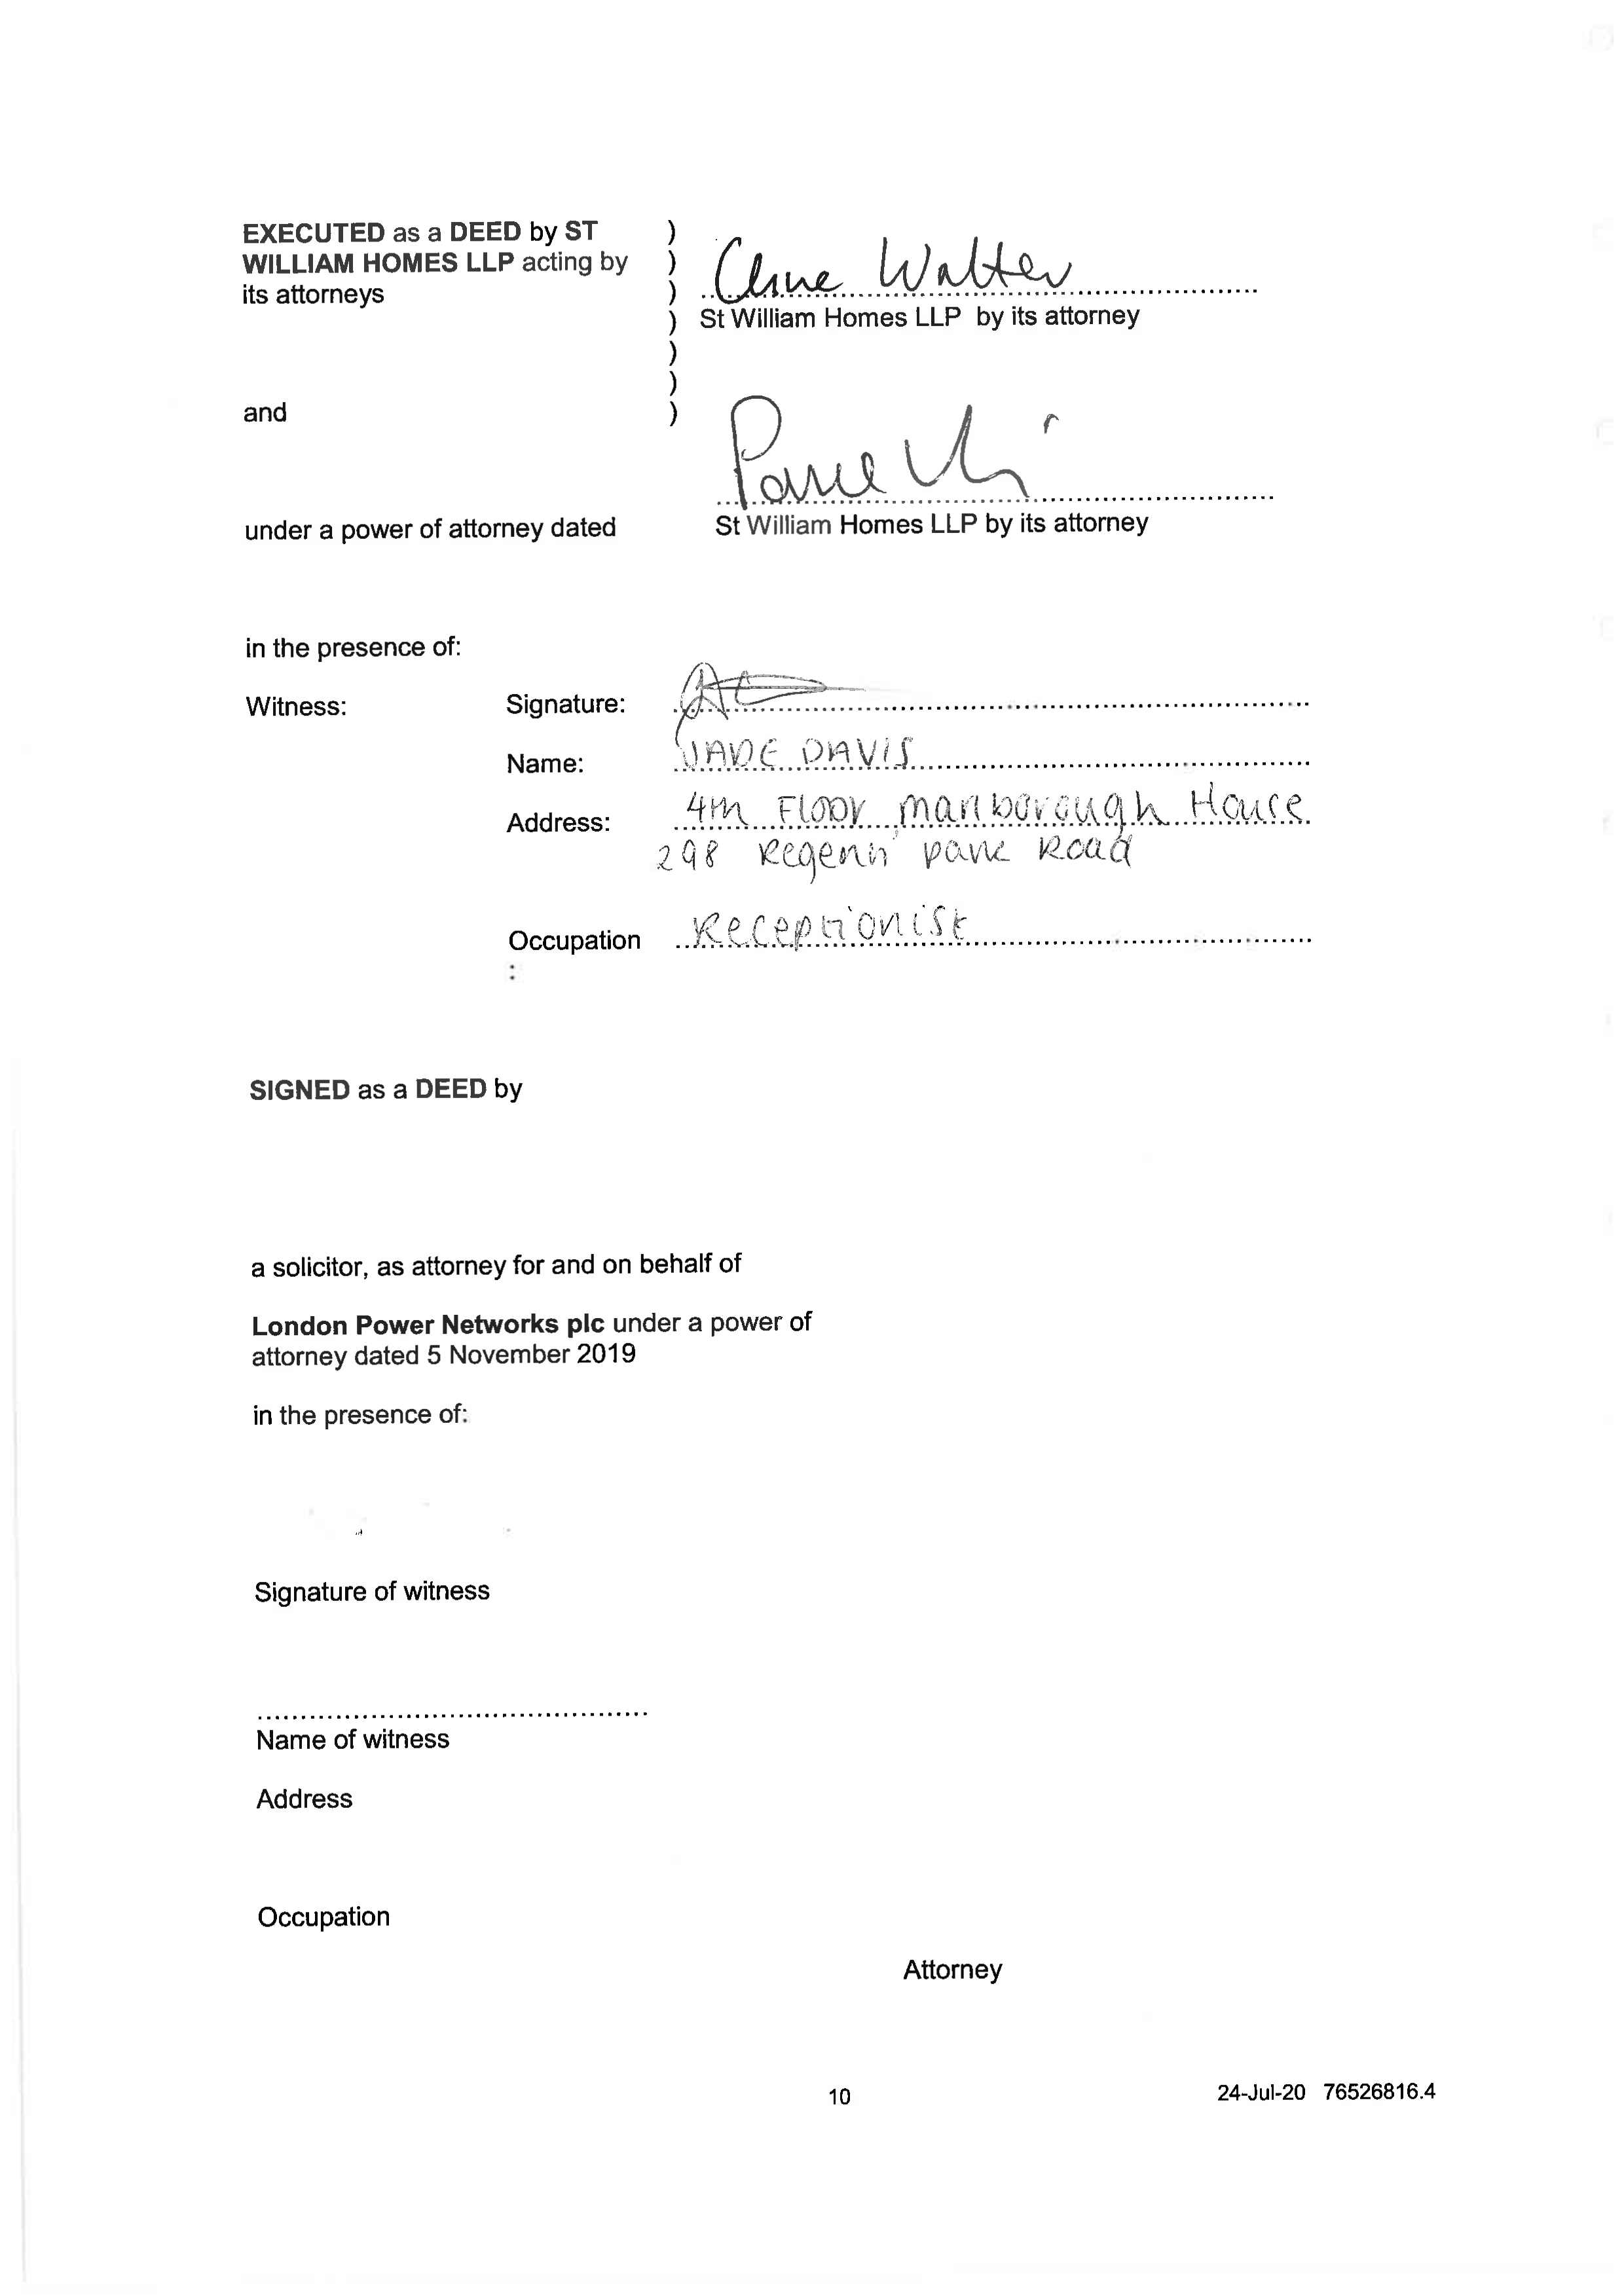 EXECUTED as a DEED by ST )
WILLIAM HOMES LLP acting by )
its attorneys ) Walter
) St William Homes LLP by its attorney
)
)
and )
under a power of attorney dated St William Homes LLP by its attorney
in the presence of:
Witness: Signature:
Name: JADE DAVIS
Address: 4th Floor Marlborough House
298 Regents Park Road
Occupation Receptionist
:
SIGNED as a DEED by
a solicitor, as attorney for and on behalf of
London Power Networks plc under a power of
attorney dated 5 November 2019
in the presence of:
Signature of witness
Name of witness
Address
Occupation
Attorney
10 24-Jul-20 76526816.4